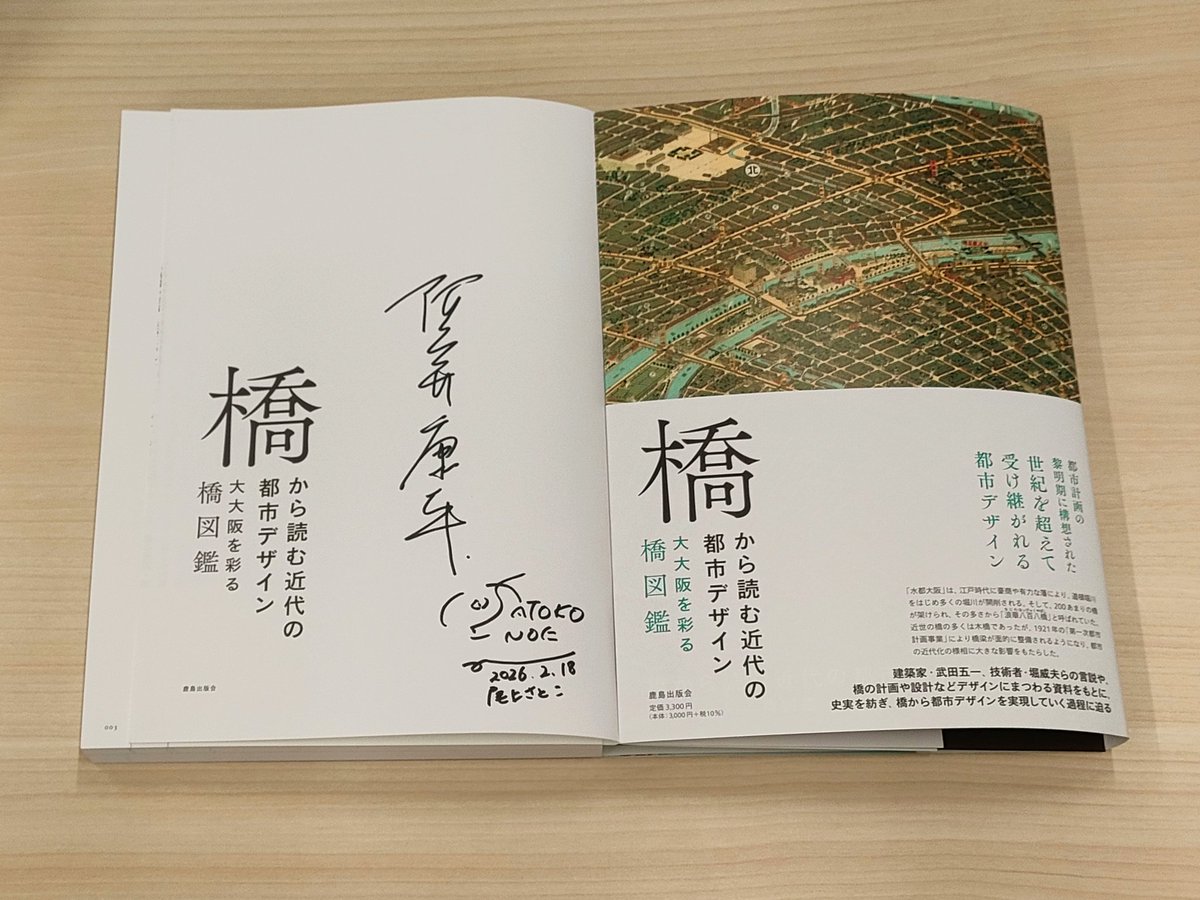 橋
から読む近代の
都市デザイン
大大阪を彩る
橋図鑑
鹿島出版会
003
阿久井康平.
SATOKO
NOE
2026.2.18
尾上さとこ
北
橋
から読む近代の
都市デザイン
大大阪を彩る
橋図鑑
鹿島出版会
定価3,300円
(本体:3,000円+税10%)
都市計画の
黎明期に構想された
世紀を超えて
受け継がれる
都市デザイン
「水都大阪」は、江戸時代に豪商や有力な藩により、道頓堀川
をはじめ多くの堀川が開削される。そして、200あまりの橋
が架けられ、その多さから「浪華八百八橋」と呼ばれていた。
近世の橋の多くは木橋であったが、1921年の「第一次都市
計画事業」により橋梁が面的に整備されるようになり、都市
の近代化の様相に大きな影響をもたらした。
建築家・武田五一、技術者・堀威夫らの言説や、
橋の計画や設計などデザインにまつわる資料をもとに、
史実を紡ぎ、橋から都市デザインを実現していく過程に迫る